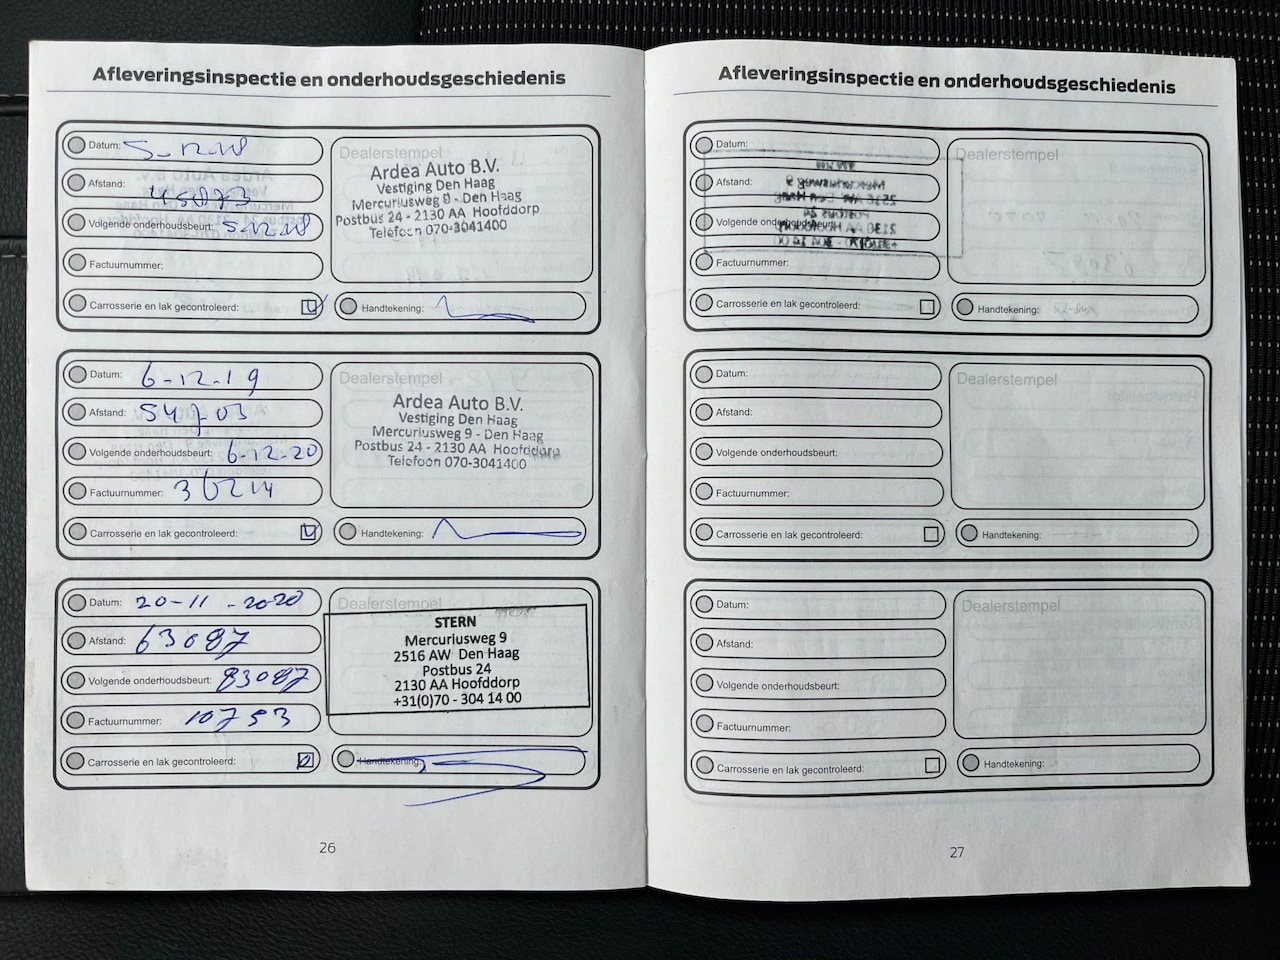 Afleveringsinspectie en onderhoudsgeschiedenis
Datum: 5-12-18
Afstand: 45873
Volgende onderhoudsbeurt: 5-12-18
Factuurnummer:
Carrosserie en lak gecontroleerd:
Dealerstempel
Ardea Auto B.V.
Vestiging Den Haag
Mercuriusweg 9 - Den Haag
Postbus 24 - 2130 AA Hoofddorp
Telefoon 070-3041400
Handtekening:
Datum: 6-12-19
Afstand: 54703
Volgende onderhoudsbeurt: 6-12-20
Factuurnummer: 36214
Carrosserie en lak gecontroleerd:
Dealerstempel
Ardea Auto B.V.
Vestiging Den Haag
Mercuriusweg 9 - Den Haag
Postbus 24 - 2130 AA Hoofddorp
Telefoon 070-3041400
Handtekening:
Datum: 20-11-2020
Afstand: 63087
Volgende onderhoudsbeurt: 83087
Factuurnummer: 10753
Carrosserie en lak gecontroleerd:
Dealerstempel
STERN
Mercuriusweg 9
2516 AW Den Haag
Postbus 24
2130 AA Hoofddorp
+31(0)70 - 304 14 00
Handtekening:
26
Afleveringsinspectie en onderhoudsgeschiedenis
Datum:
Afstand:
Volgende onderhoudsbeurt:
Factuurnummer:
Carrosserie en lak gecontroleerd:
Dealerstempel
Handtekening:
Datum:
Afstand:
Volgende onderhoudsbeurt:
Factuurnummer:
Carrosserie en lak gecontroleerd:
Dealerstempel
Handtekening:
Datum:
Afstand:
Volgende onderhoudsbeurt:
Factuurnummer:
Carrosserie en lak gecontroleerd:
Dealerstempel
Handtekening:
27